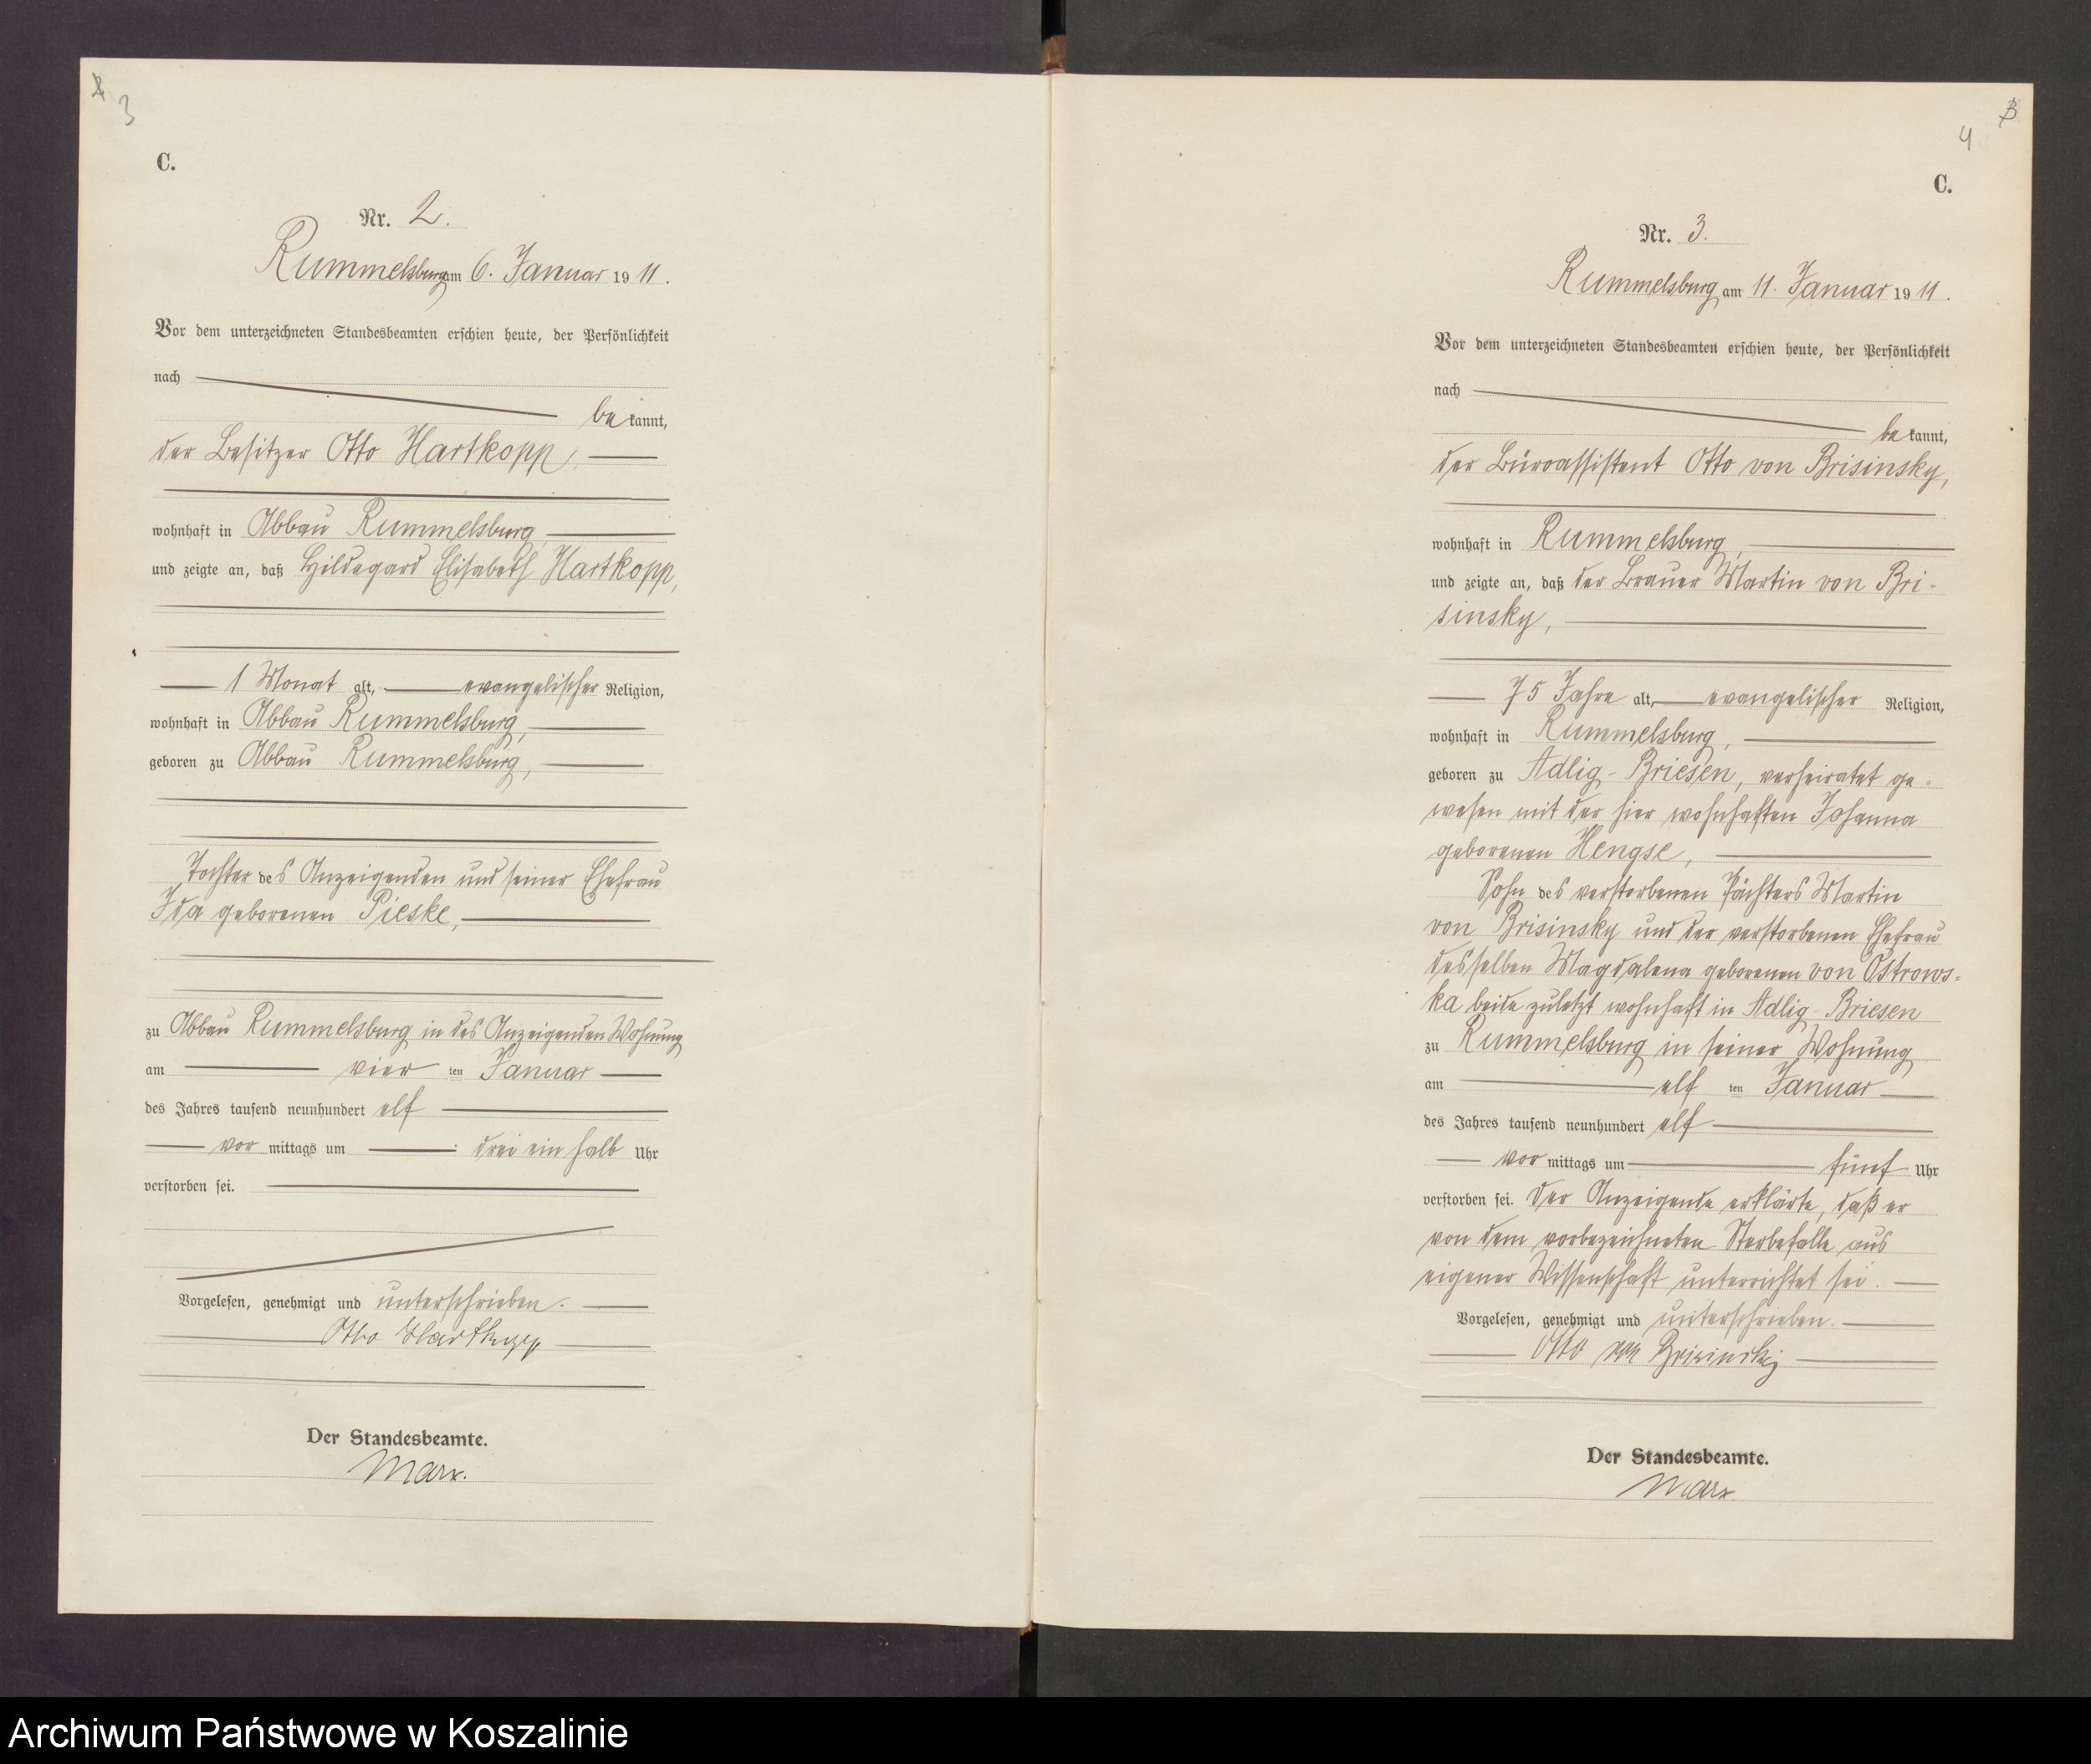 3
C.
Nr. 2.
Rummelsburg am 6. Januar 1911.
Vor dem unterzeichneten Standesbeamten erschien heute, der Persönlichkeit
nach
bekannt,
der Besitzer Otto Hartkopp,
wohnhaft in Abbau Rummelsburg,
und zeigte an, daß Hildegard Elisabeth Hartkopp,
1 Monat alt, evangelischer Religion,
wohnhaft in Abbau Rummelsburg,
geboren zu Abbau Rummelsburg,
Tochter des Anzeigenden und seiner Ehefrau
Ida geborenen Pieske,
zu Abbau Rummelsburg in des Anzeigenden Wohnung
am vierten Januar
des Jahres tausend neunhundert elf
vormittags um drei ein halb Uhr
verstorben sei.
Vorgelesen, genehmigt und unterschrieben.
Otto Hartkopp
Der Standesbeamte.
Marx.
3
4
C.
Nr. 3.
Rummelsburg am 11. Januar 1911.
Vor dem unterzeichneten Standesbeamten erschien heute, der Persönlichkeit
nach
bekannt,
der Büroassistent Otto von Brisinsky,
wohnhaft in Rummelsburg,
und zeigte an, daß der Brauer Martin von Bri-
sinsky,
75 Jahre alt, evangelischer Religion,
wohnhaft in Rummelsburg,
geboren zu Adlig-Briesen, verheiratet ge-
wesen mit der hier wohnhaften Johanna
geborenen Hengse,
Sohn des verstorbenen Pächters Martin
von Brisinsky und der verstorbenen Ehefrau
desselben Magdalena geborenen von Ostrows-
ka beide zuletzt wohnhaft in Adlig-Briesen
zu Rummelsburg in seiner Wohnung
am elften Januar
des Jahres tausend neunhundert elf
vormittags um fünf Uhr
verstorben sei. Der Anzeigende erklärte, daß er
von dem vorbezeichneten Sterbefalle aus
eigener Wissenschaft unterrichtet sei.
Vorgelesen, genehmigt und unterschrieben.
Otto von Brisinsky
Der Standesbeamte.
Marx.
Archiwum Państwowe w Koszalinie